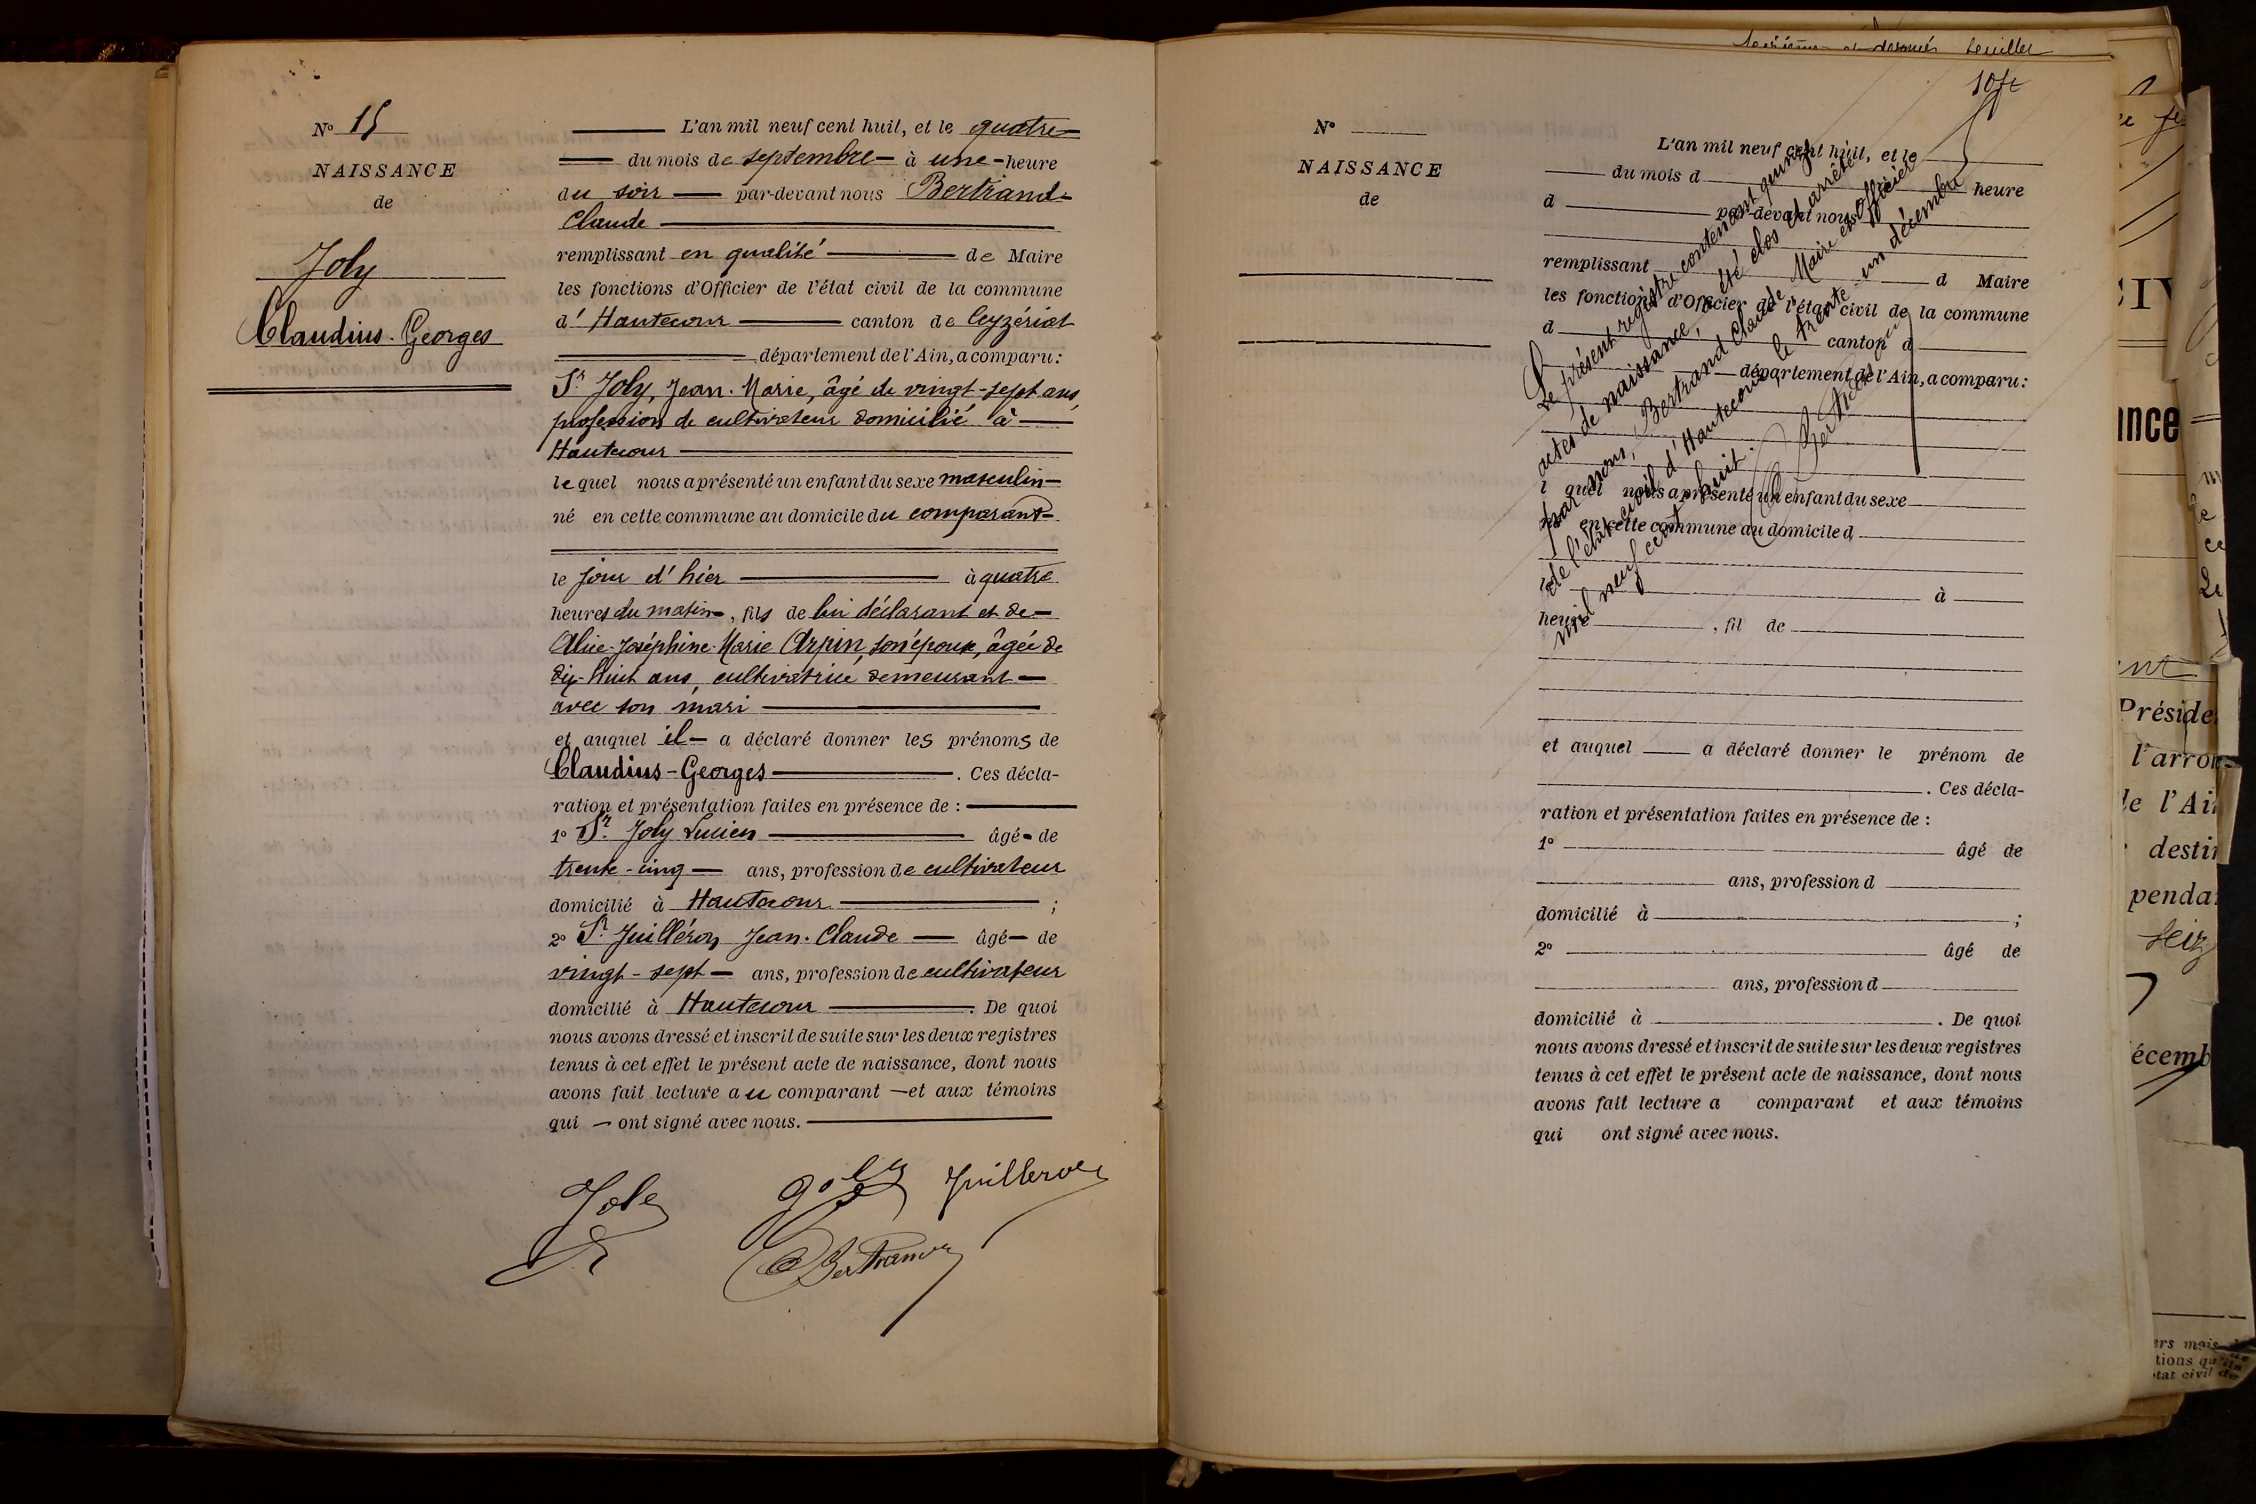 N° 15
NAISSANCE
de
Joly
Claudius-Georges
L'an mil neuf cent huit, et le quatre
du mois de septembre à une heure
du soir par-devant nous Bertrand
Claude
remplissant en qualité de Maire
les fonctions d'Officier de l'état civil de la commune
d'Hautecour canton de Ceyzériat
département de l'Ain, a comparu:
Sr Joly, Jean-Marie, âgé de vingt-sept ans,
profession de cultivateur domicilié à
Hautecour
lequel nous a présenté un enfant du sexe masculin
né en cette commune au domicile du comparant
le jour d'hier à quatre
heures du matin, fils de lui déclarant et de
Alice-Joséphine-Marie Arpin, son épouse, âgée de
dix-huit ans, cultivatrice demeurant
avec son mari
et auquel il a déclaré donner les prénoms de
Claudius-Georges. Ces décla-
ration et présentation faites en présence de :
1° Sr Joly Lucien âgé de
trente-cinq ans, profession de cultivateur
domicilié à Hautecour ;
2° Sr Juilléron Jean-Claude âgé de
vingt-sept ans, profession de cultivateur
domicilié à Hautecour. De quoi
nous avons dressé et inscrit de suite sur les deux registres
tenus à cet effet le présent acte de naissance, dont nous
avons fait lecture au comparant et aux témoins
qui ont signé avec nous.
Joly
Joly
Juilleron
Bertrand
et dernier feuillet
10
N°
NAISSANCE
de
L'an mil neuf cent huit, et le
du mois d heure
d par-devant nous
remplissant d Maire
les fonctions d'Officier de l'état civil de la commune
d canton d
département de l'Ain, a comparu:
l quel nous a présenté un enfant du sexe
né en cette commune au domicile d
le à
heure , fil de
et auquel a déclaré donner le prénom de
. Ces décla-
ration et présentation faites en présence de :
1° âgé de
ans, profession d
domicilié à ;
2° âgé de
ans, profession d
domicilié à . De quoi
nous avons dressé et inscrit de suite sur les deux registres
tenus à cet effet le présent acte de naissance, dont nous
avons fait lecture a comparant et aux témoins
qui ont signé avec nous.
Le présent registre contenant quinze
actes de naissance, a été clos et arrêté
par nous, Bertrand Claude, Maire et Officier
de l'état civil d'Hautecour, le trente un décembre
mil neuf cent huit.
Bertrand
ance
Préside
l'arron
de l'Ai
destin
penda
seiz
écemb
ers mois
tions qu'ils
état civil de